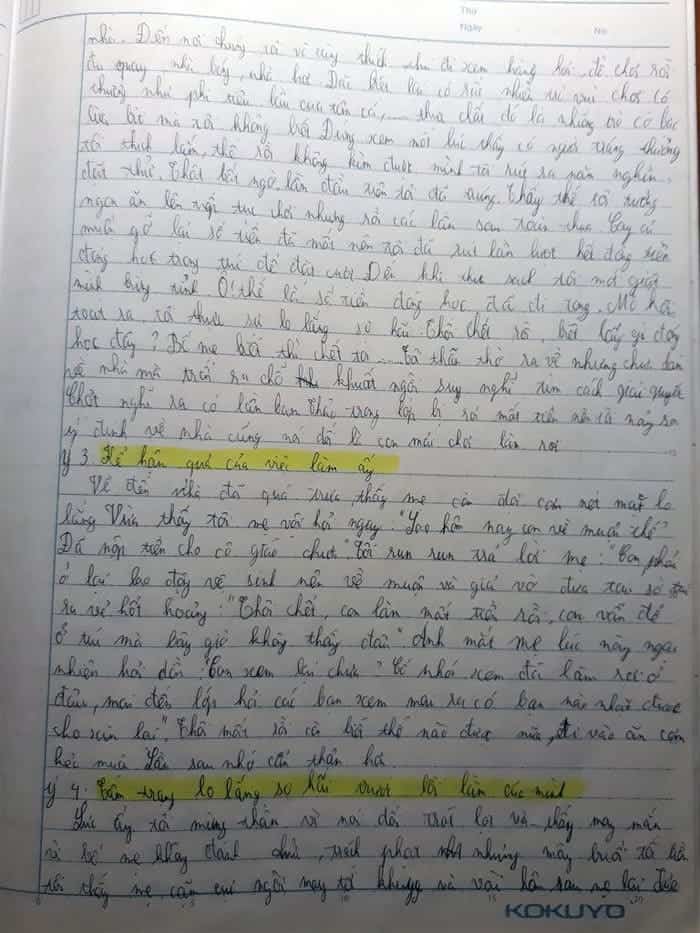 Thứ
Ngày No
nhà. Đến nơi chúng tôi vô cùng thích thú đi xem hàng hoá, đồ chơi rồi
đu quay, nhà bóng, nhà hơi Đặc biệt lại có rất nhiều trò vui chơi có
thưởng như phi tiêu, bầu cua tôm cá, ..... thưa đấy đó là những trò cờ bạc
bịp mà tôi không biết Đứng xem mỗi lúc thấy có người trúng thưởng
tôi thích lắm, thế rồi không kìm được mình tôi rút ra năm nghìn
đặt thử. Thật bất ngờ lần đầu tiên tôi đã trúng. Thấy thế tôi tưởng
ngon ăn liền tiếp tục chơi nhưng rồi các lần sau toàn thua. Cay cú
muốn gỡ lại số tiền đã mất nên tôi đã rút lần lượt hết đống tiền
đóng học trong túi để đặt cược Đến khi thua sạch tôi mới giật
mình bừng tỉnh Ô! thế là số tiền đóng học đã đi tong. Mồ hôi
toát ra, tôi thực sự lo lắng sợ hãi. Thôi chết rồi, biết lấy gì đóng
học đây? Bố mẹ biết thì chết tôi .... Tôi thẫn thờ ra về nhưng chưa dám
về nhà mà trốn ra chỗ khuất ngồi suy nghĩ tìm cách giải quyết
Chợt nghĩ ra có lần bạn Thảo trong lớp bị rơi mất tiền nên tôi nảy ra
ý định về nhà cũng nói dối là con mải chơi làm rơi
ý 3. Kể hậu quả của việc làm ấy
Về đến nhà đã quá trưa, thấy mẹ còn đợi cơm nét mặt lo
lắng Vừa thấy tôi mẹ vội hỏi ngay: "Sao hôm nay con về muộn thế?
Đã nộp tiền cho cô giáo chưa". Tôi run run trả lời mẹ: "Con phải
ở lại lao động vệ sinh nên về muộn và giả vờ đưa tay sờ túi
ra vẻ hốt hoảng: "Thôi chết, con làm mất tiền rồi, con vẫn để
ở túi mà bây giờ không thấy đâu". Ánh mắt mẹ lúc này ngạc
nhiên hỏi dồn: "Con xem lại chưa? Cố nhớ xem đã làm rơi ở
đâu, mai đến lớp hỏi các bạn xem may ra có bạn nào nhặt được
cho xin lại". Thôi mất rồi còn biết thế nào được nữa, đi vào ăn cơm
kẻo muộn lần sau nhớ cẩn thận hơn.
ý 4. Tâm trạng lo lắng sợ hãi trước lỗi lầm của mình
Lúc ấy tôi mừng thầm vì nói dối trót lọt và thấy may mắn
vì bố mẹ không đánh chửi, trách phạt nhưng mấy buổi tối liền
tôi thấy mẹ cặm cụi ngồi may tới khuya và vài hôm sau mẹ lại đưa
KOKUYO